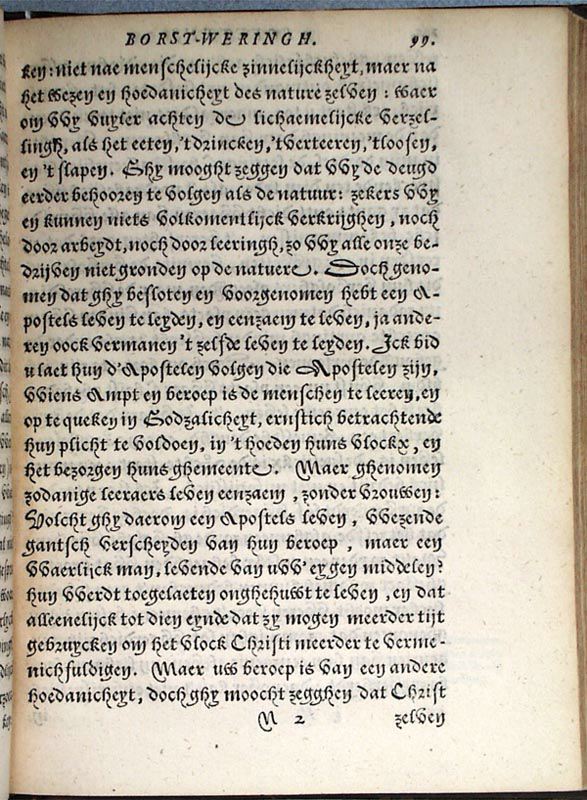 BORST-WERINGH. 99.
ken: niet nae menschelijcke zinnelijckheyt, maer na
het wezen en hoedanicheyt des nature zelven: waer
om VVy vuyler achten de lichaemelijcke verzel-
lingh, als het eeten, 't drincken, 't verteeren, 't loosen,
en 't slapen. Ghy mooght zeggen dat VVy de deugd
eerder behooren te volgen als de natuur: zekers VVy
en kunnen niets volkomentlijck verkrijghen, noch
door arbeydt, noch door leeringh, zo VVy alle onze be-
drijven niet gronden op de natuere. Doch geno-
men dat ghy besloten en voorgenomen hebt een A-
postels leven te leyden, en eenzaem te leven, ja ande-
ren oock vermanen 't zelfde leven te leyden. Ick bid
u laet hun d'Apostelen volgen die Apostelen zijn,
VViens Ampt en beroep is de menschen te leeren, en
op te queken in Godzalicheyt, ernstich betrachtende
hun plicht te voldoen, in 't hoeden huns vlockx, en
het bezorgen huns ghemeente. Maer ghenomen
zodanige leeraers leven eenzaem, zonder vrouwen:
Volcht ghy daerom een Apostels leven, VVezende
gantsch verscheyden van hun beroep, maer een
VVaerlijck man, levende van uVV' eygen middelen?
hun VVerdt toegelaeten onghehuwt te leven, en dat
alleenelijck tot dien eynde dat zy mogen meerder tijt
gebruycken om het vlock Christi meerder te verme-
nichfuldigen. Maer uw beroep is van een andere
hoedanicheyt, doch ghy moocht zegghen dat Christ
N 2 zelven